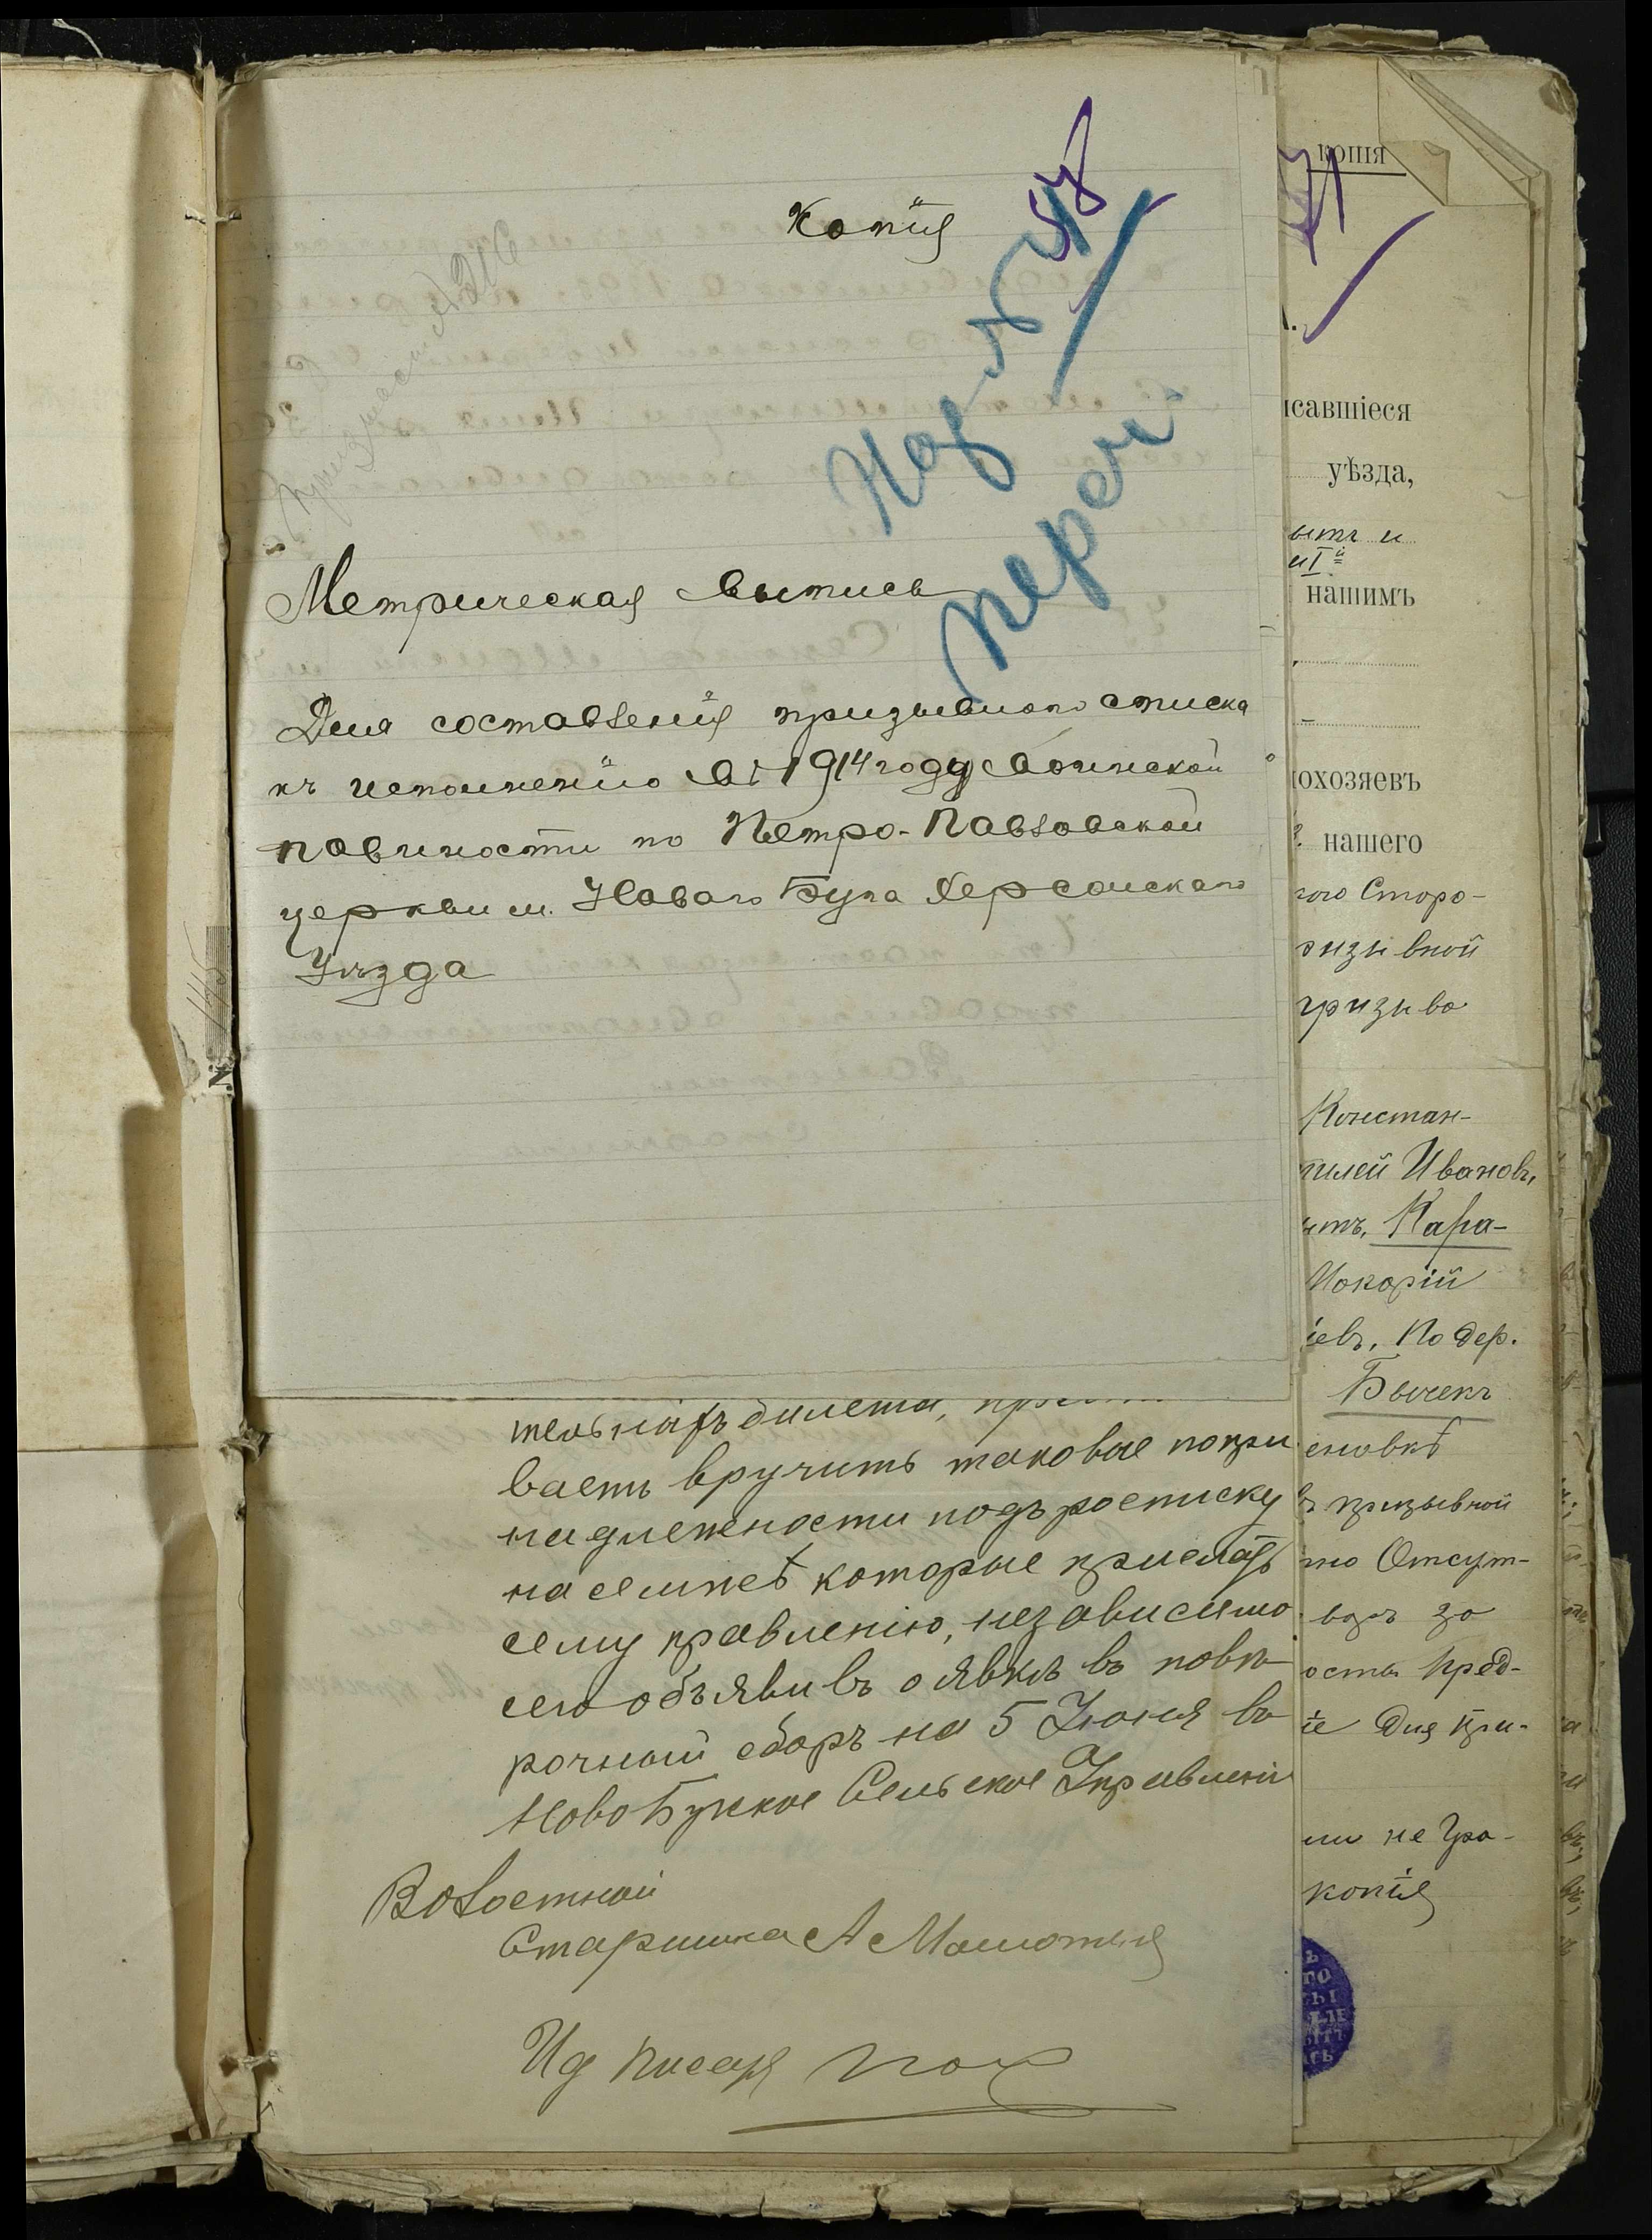 Копія
57
Метрическая Выпись
Для составленія призывного списка
къ исполненію въ 1914 году Воинской
повинности по Петро-Павловской
церкви м. Новаго Буга Херсонскаго
Уѣзда
тельныхъ билета,
ваетъ вручить таковые по при
надлежности подъ росписку
на семже которые прислать
сему правленію, независимо
сего объявивъ о явкѣ въ повѣ
рочный сборъ на 5 Іюня въ
Ново Бугское Сельское Управленіе
Волостной
Старшина А
Ид писаря
копія
исавшіеся
уѣзда,
ытъ и
нашимъ
охозяевъ
нашего
ого Сторо-
ризывной
призыва
Констан-
тилей Ивановъ,
итъ, Кара-
іевъ, По дер.
Бычекъ
еновкѣ
въ призывной
но Отсут-
осты пред-
іе для при-
ии не Гра-
копія
№ 1145